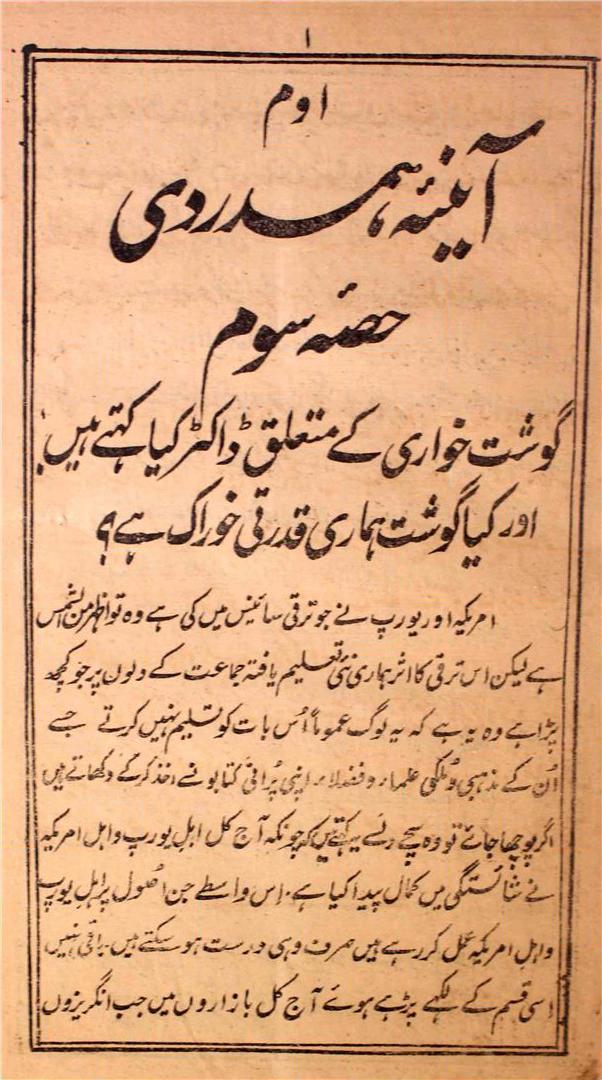 ۱
اوم
آئینۂ ہمدردی
حصۂ سوم
گوشت خواری کے متعلق ڈاکٹر کیا کہتے ہیں؟
اور کیا گوشت ہماری قدرتی خوراک ہے؟
امریکہ اور یورپ نے جو ترقی سائینس میں کی ہے وہ تو اظہر من الشمس
ہے لیکن اس ترقی کا اثر ہماری نئی تعلیم یافتہ جماعت کے دلوں پر جو کچھ
پڑا ہے وہ یہ ہے کہ یہ لوگ عموماً اُس بات کو تسلیم نہیں کرتے جسے
اُن کے مذہبی و ملکی علماء و فضلاء اپنی پُرانی کتابونسے اخذ کرکے دکھاتے ہیں
اگر پوچھا جائے تو وہ سچے دلسے یہ کہتے ہیں کہ چونکہ آج کل اہل یورپ و اہل امریکہ
نے شائستگی میں کمال پیدا کیا ہے۔ اِس واسطے جن اصُول پر اہل یورپ
و اہل امریکہ عمل کر رہے ہیں صرف وہی درست ہو سکتے ہیں۔ باقی نہیں
اسی قسم کے لکھے پڑھے ہوئے آج کل بازاروں میں جب انگریزوں